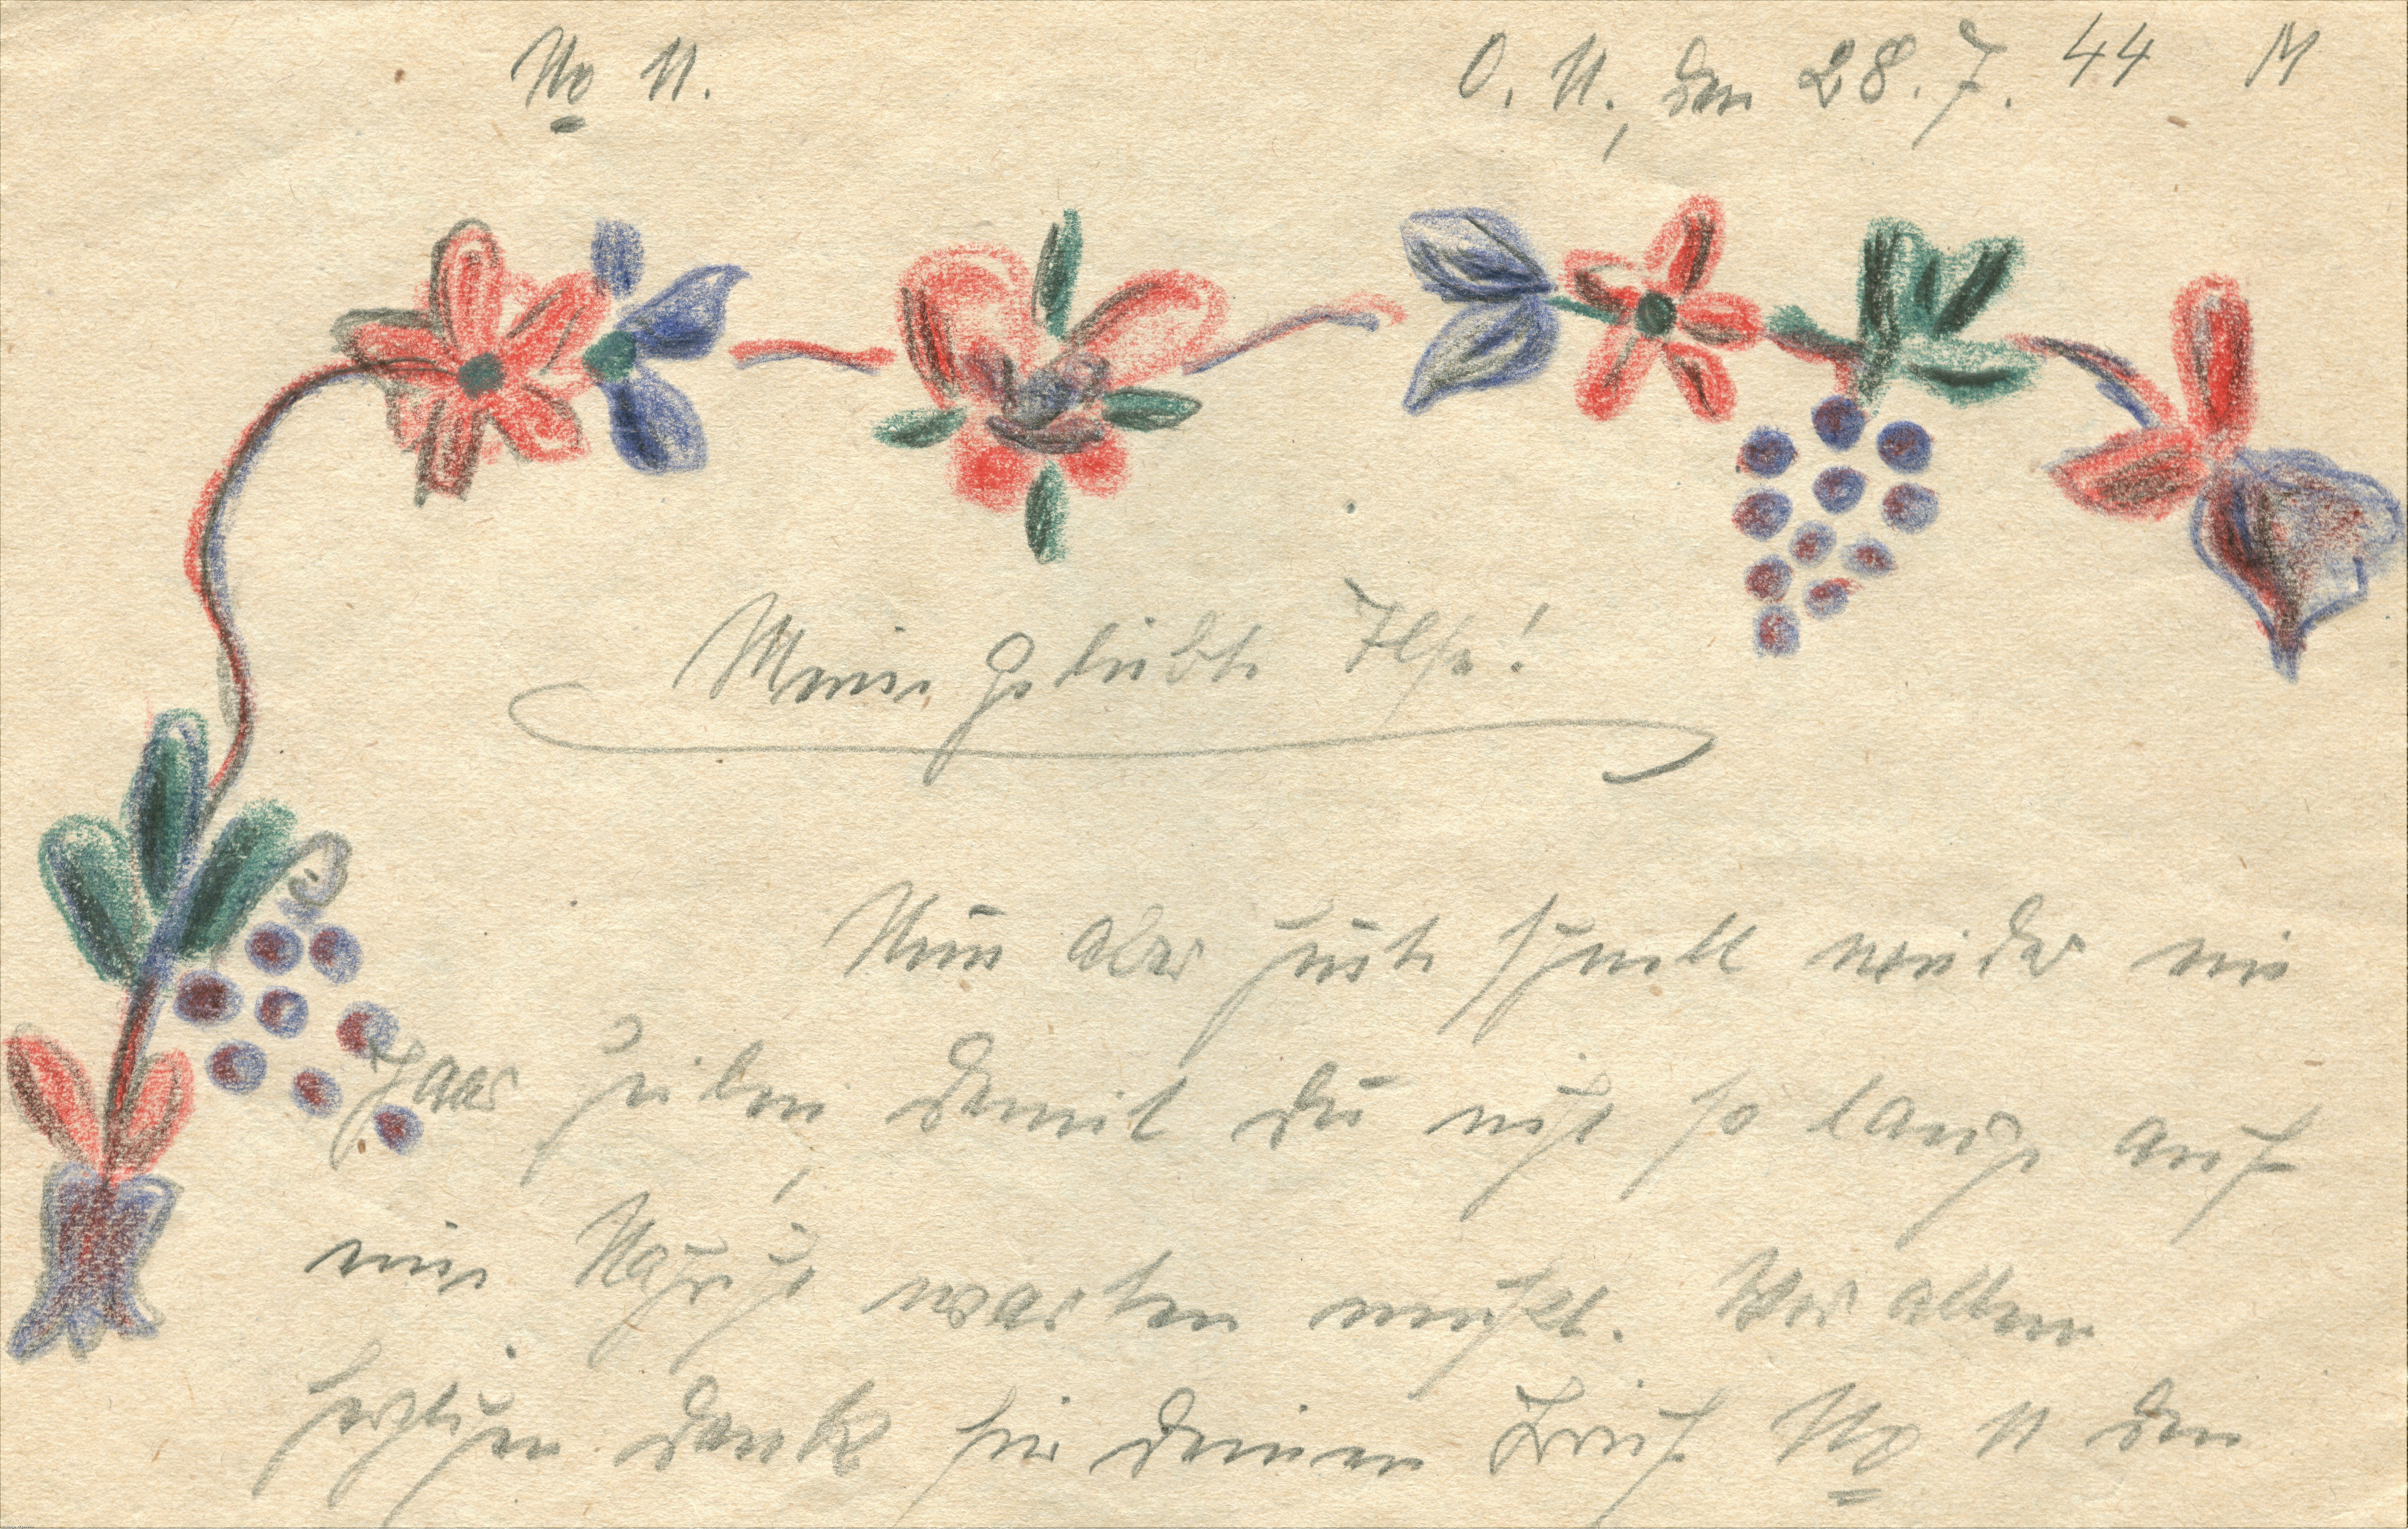 No 11.
O. U., den 28. 7. 44 M
Meine geliebte Ilse!
Nun aber heute schnell wieder ein
paar Zeilen, damit du nicht so lange auf
eine Nachricht warten mußt. Vor allem
herzlichen Dank für deinen Brief No 11 den